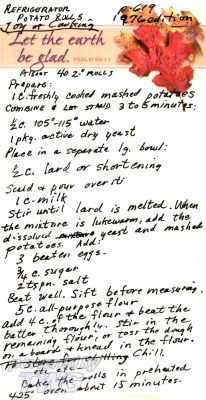 REFRIGERATOR
POTATO ROLLS
p-619
Joy of Cooking
1976 edition
Let the earth
be glad. PSALM 96:11
About 40 2" rolls
Prepare:
1 C. freshly cooked mashed potatoes
COMBINE & LET STAND 3 to 5 minutes:
½ c. 105°-115° water
1 pkg. active dry yeast
Place in a separate lg. bowl:
½ C. lard or shortening
Scald & pour over it:
1 c. milk
Stir until lard is melted. When
the mixture is lukewarm, add the
dissolved yeast and mashed
potatoes. Add:
3 beaten eggs.
¾ c. sugar
2 tspn. salt
Beat well. Sift before measuring.
5 c. all-purpose flour
add 4 c. of the flour & beat the
batter thoroughly. Stir in the
remaining flour, or toss the dough
on a board & knead in the flour.
Chill.
etc etc
Bake the rolls in preheated
425° oven about 15 minutes.